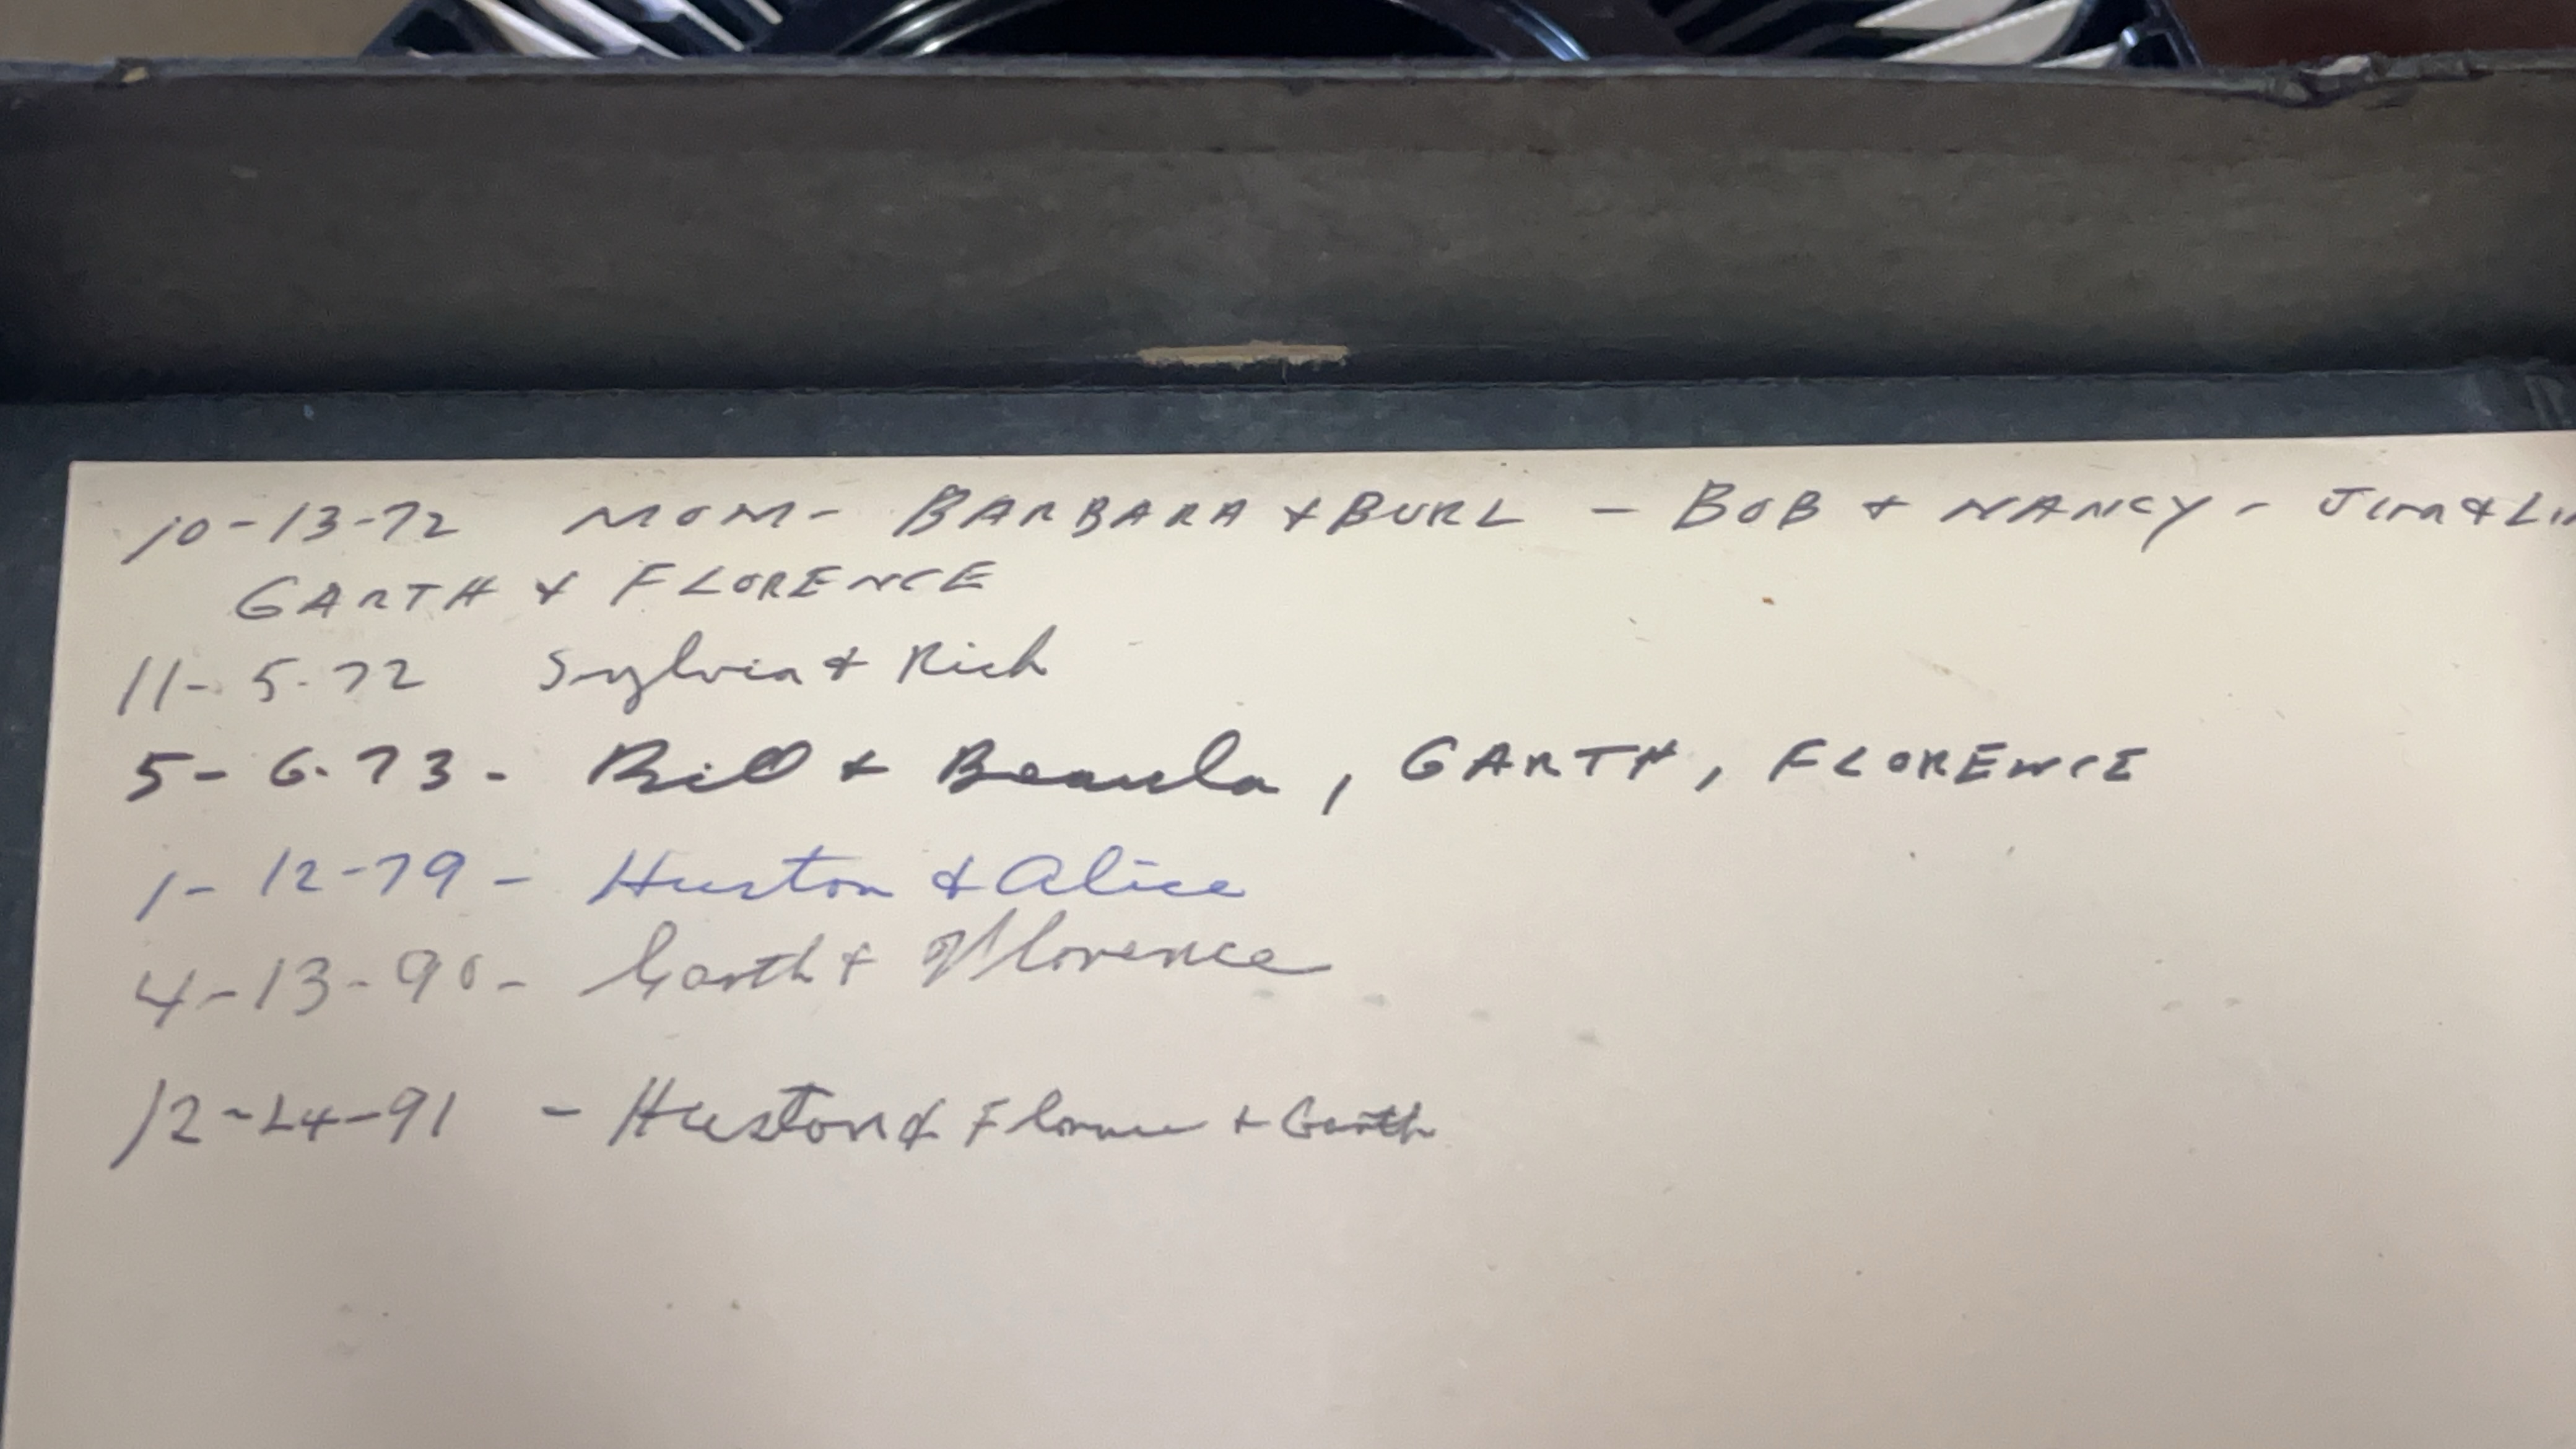 10-13-72 MOM- BARBARA + BURL - BOB + NANCY - Jim + Li
GARTH + FLORENCE
11-5-72 Sylvia + Rich
5-6-73- Bill + Beaula, GARTH, FLORENCE
1-12-79- Huston & Alice
4-13-90- Garth + Florence
12-24-91 - Huston & Florence + Garth